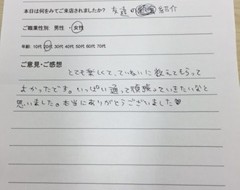 本日は何をみてご来店されましたか? 友達の紹介
ご職業性別 男性 ・ 女性
年齢 10代 20代 30代 40代 50代 60代 70代
ご意見・ご感想
とても楽しくて、ていねいに教えてもらって
よかったです。いっぱい通って頑張っていきたいなと
思いました。本当にありがとうございました♥